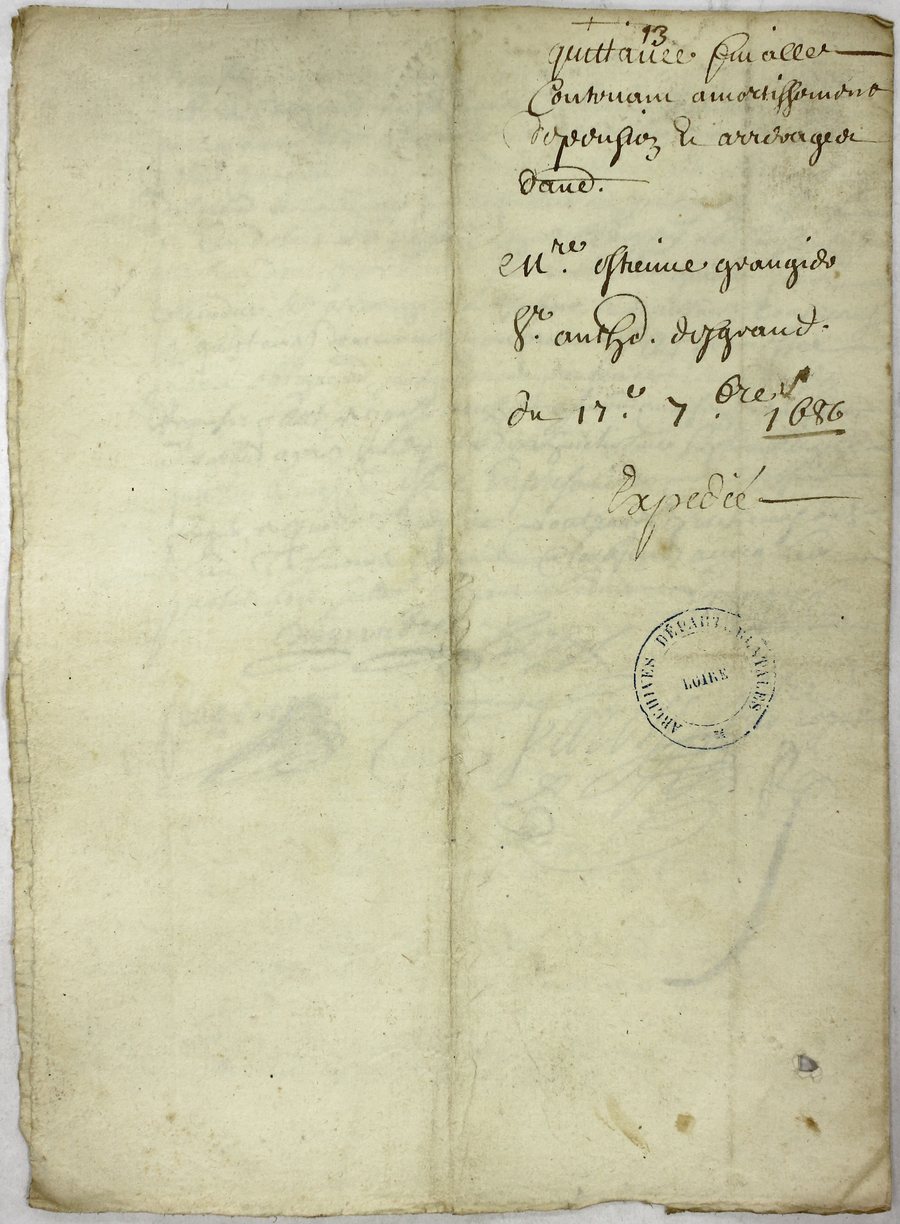 13
quittance finalle
Contenant amortissement
de pension et arrerages
daud.
Mre. estienne
Sr. anthe. desgrand.
du 17e 7bre 1686
Expedié
ARCHIVES DÉPARTEMENTALES
LOIRE